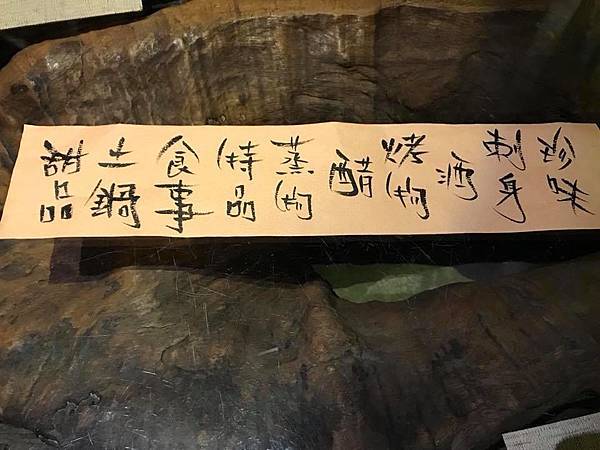 珍味
刺身
酒
烤物
醋
蒸物
特品
食事
土鍋
甜品